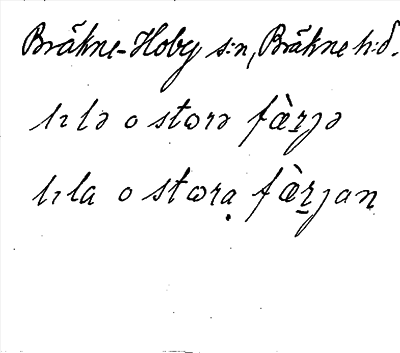 Bräkne-Hoby s:n, Bräkne h:d.
lɩlə o stωrə fæ̀r̲ȷə
lɩla o stωrạ fæ̀r̲ȷan